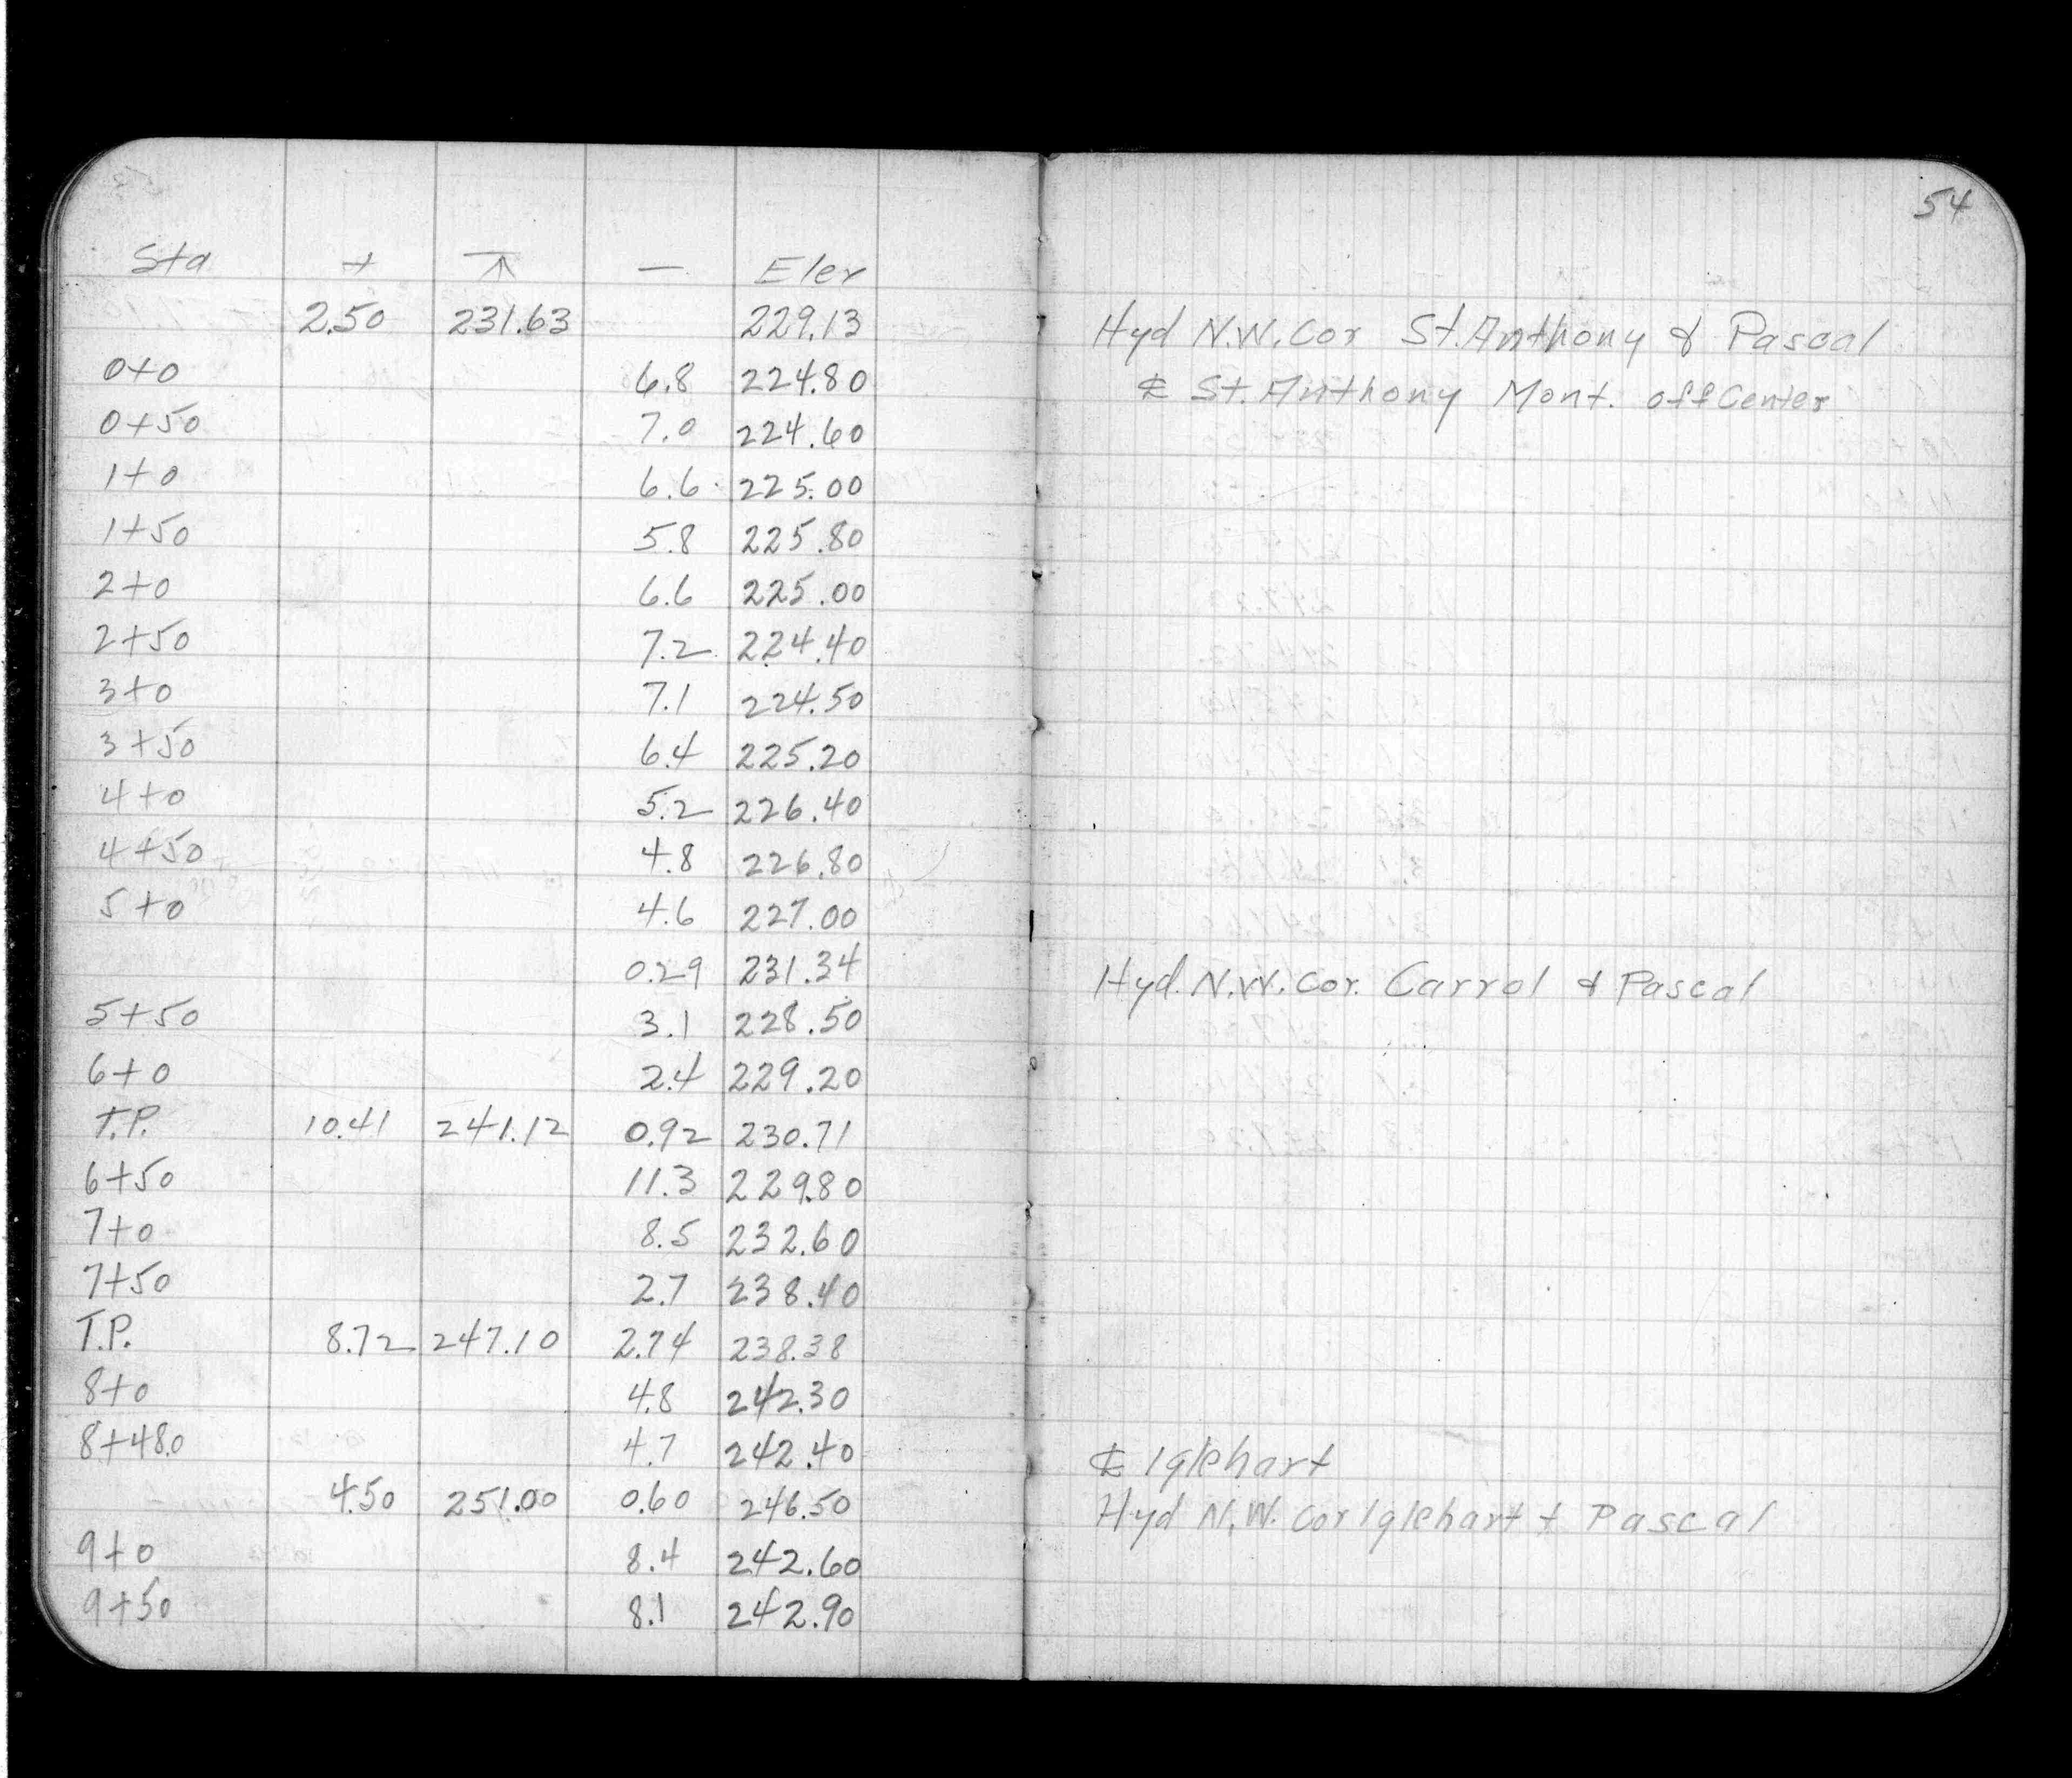 54
Sta + ⊼ - Elev
2.50 231.63 229.13 Hyd N.W. Cor St. Anthony & Pascal
0+0 6.8 224.80 ℄ St. Anthony Mont. off Center
0+50 7.0 224.60
1+0 6.6 225.00
1+50 5.8 225.80
2+0 6.6 225.00
2+50 7.2 224.40
3+0 7.1 224.50
3+50 6.4 225.20
4+0 5.2 226.40
4+50 4.8 226.80
5+0 4.6 227.00
0.29 231.34 Hyd. N.W. Cor. Carrol & Pascal
5+50 3.1 228.50
6+0 2.4 229.20
T.P. 10.41 241.12 0.92 230.71
6+50 11.3 229.80
7+0 8.5 232.60
7+50 2.7 238.40
T.P. 8.72 247.10 2.74 238.38
8+0 4.8 242.30
8+48.0 4.7 242.40 ℄ Iglehart
4.50 251.00 0.60 246.50 Hyd N.W. Cor Iglehart + Pascal
9+0 8.4 242.60
9+50 8.1 242.90